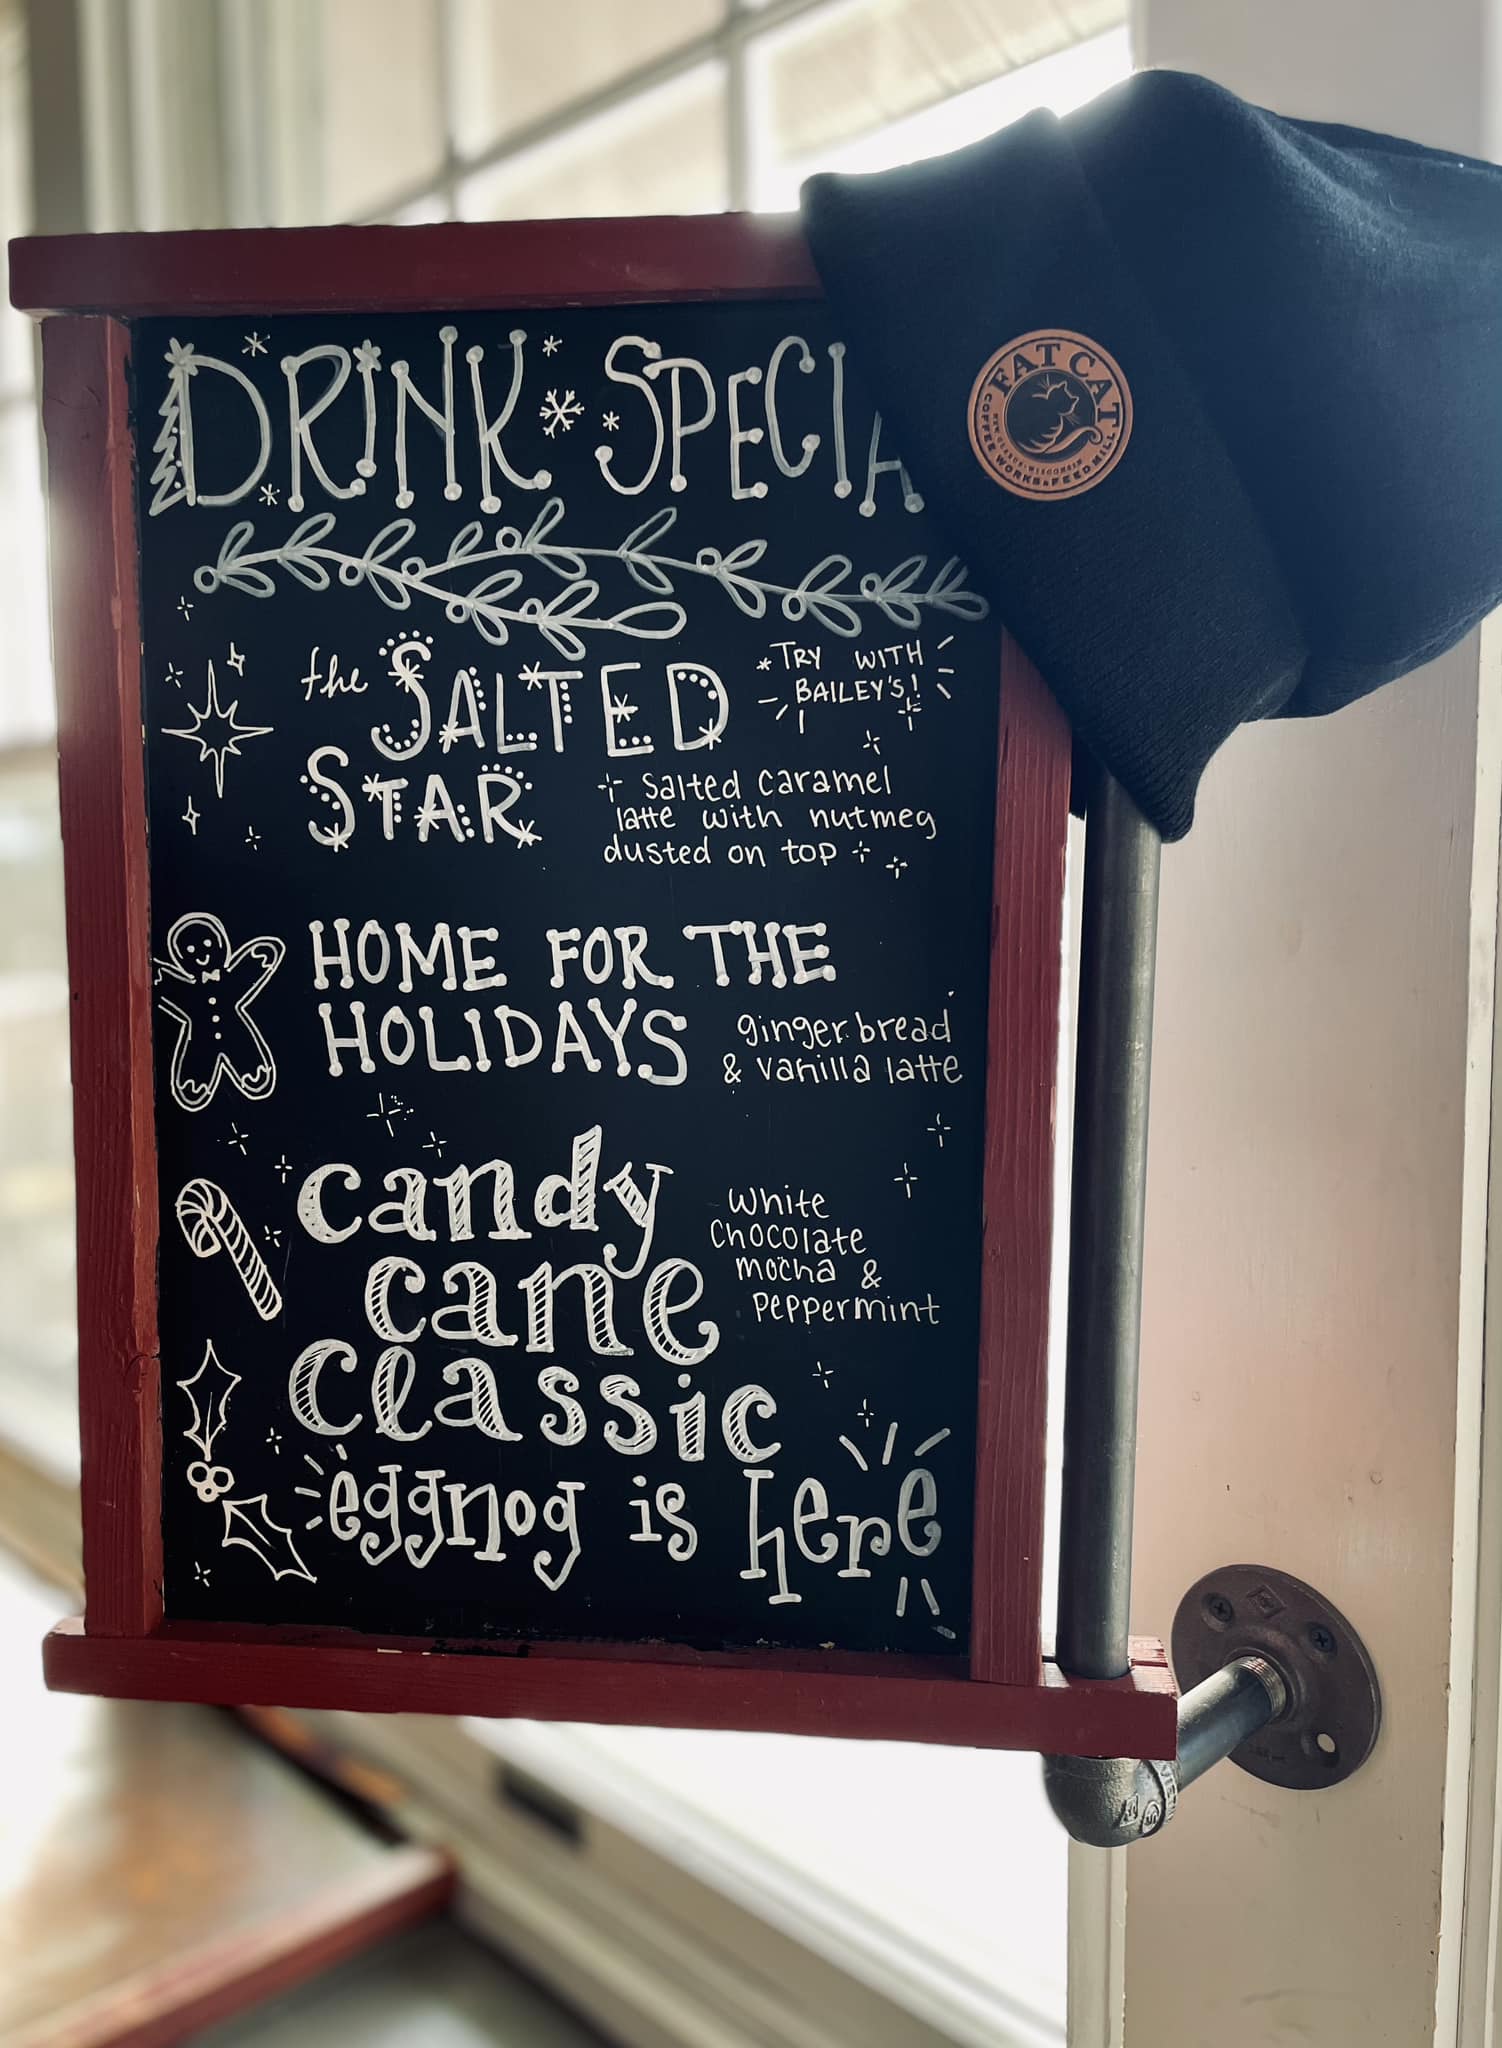 DRINK SPECIA
the SALTED
STAR
*TRY WITH
BAILEY'S!
salted caramel
latte with nutmeg
dusted on top
HOME FOR THE
HOLIDAYS
gingerbread
& vanilla latte
candy
cane
classic
White
Chocolate
mocha &
Peppermint
eggnog is here
FAT CAT
NEW GLARUS•WISCONSIN
COFFEE WORKS & FEED MILL